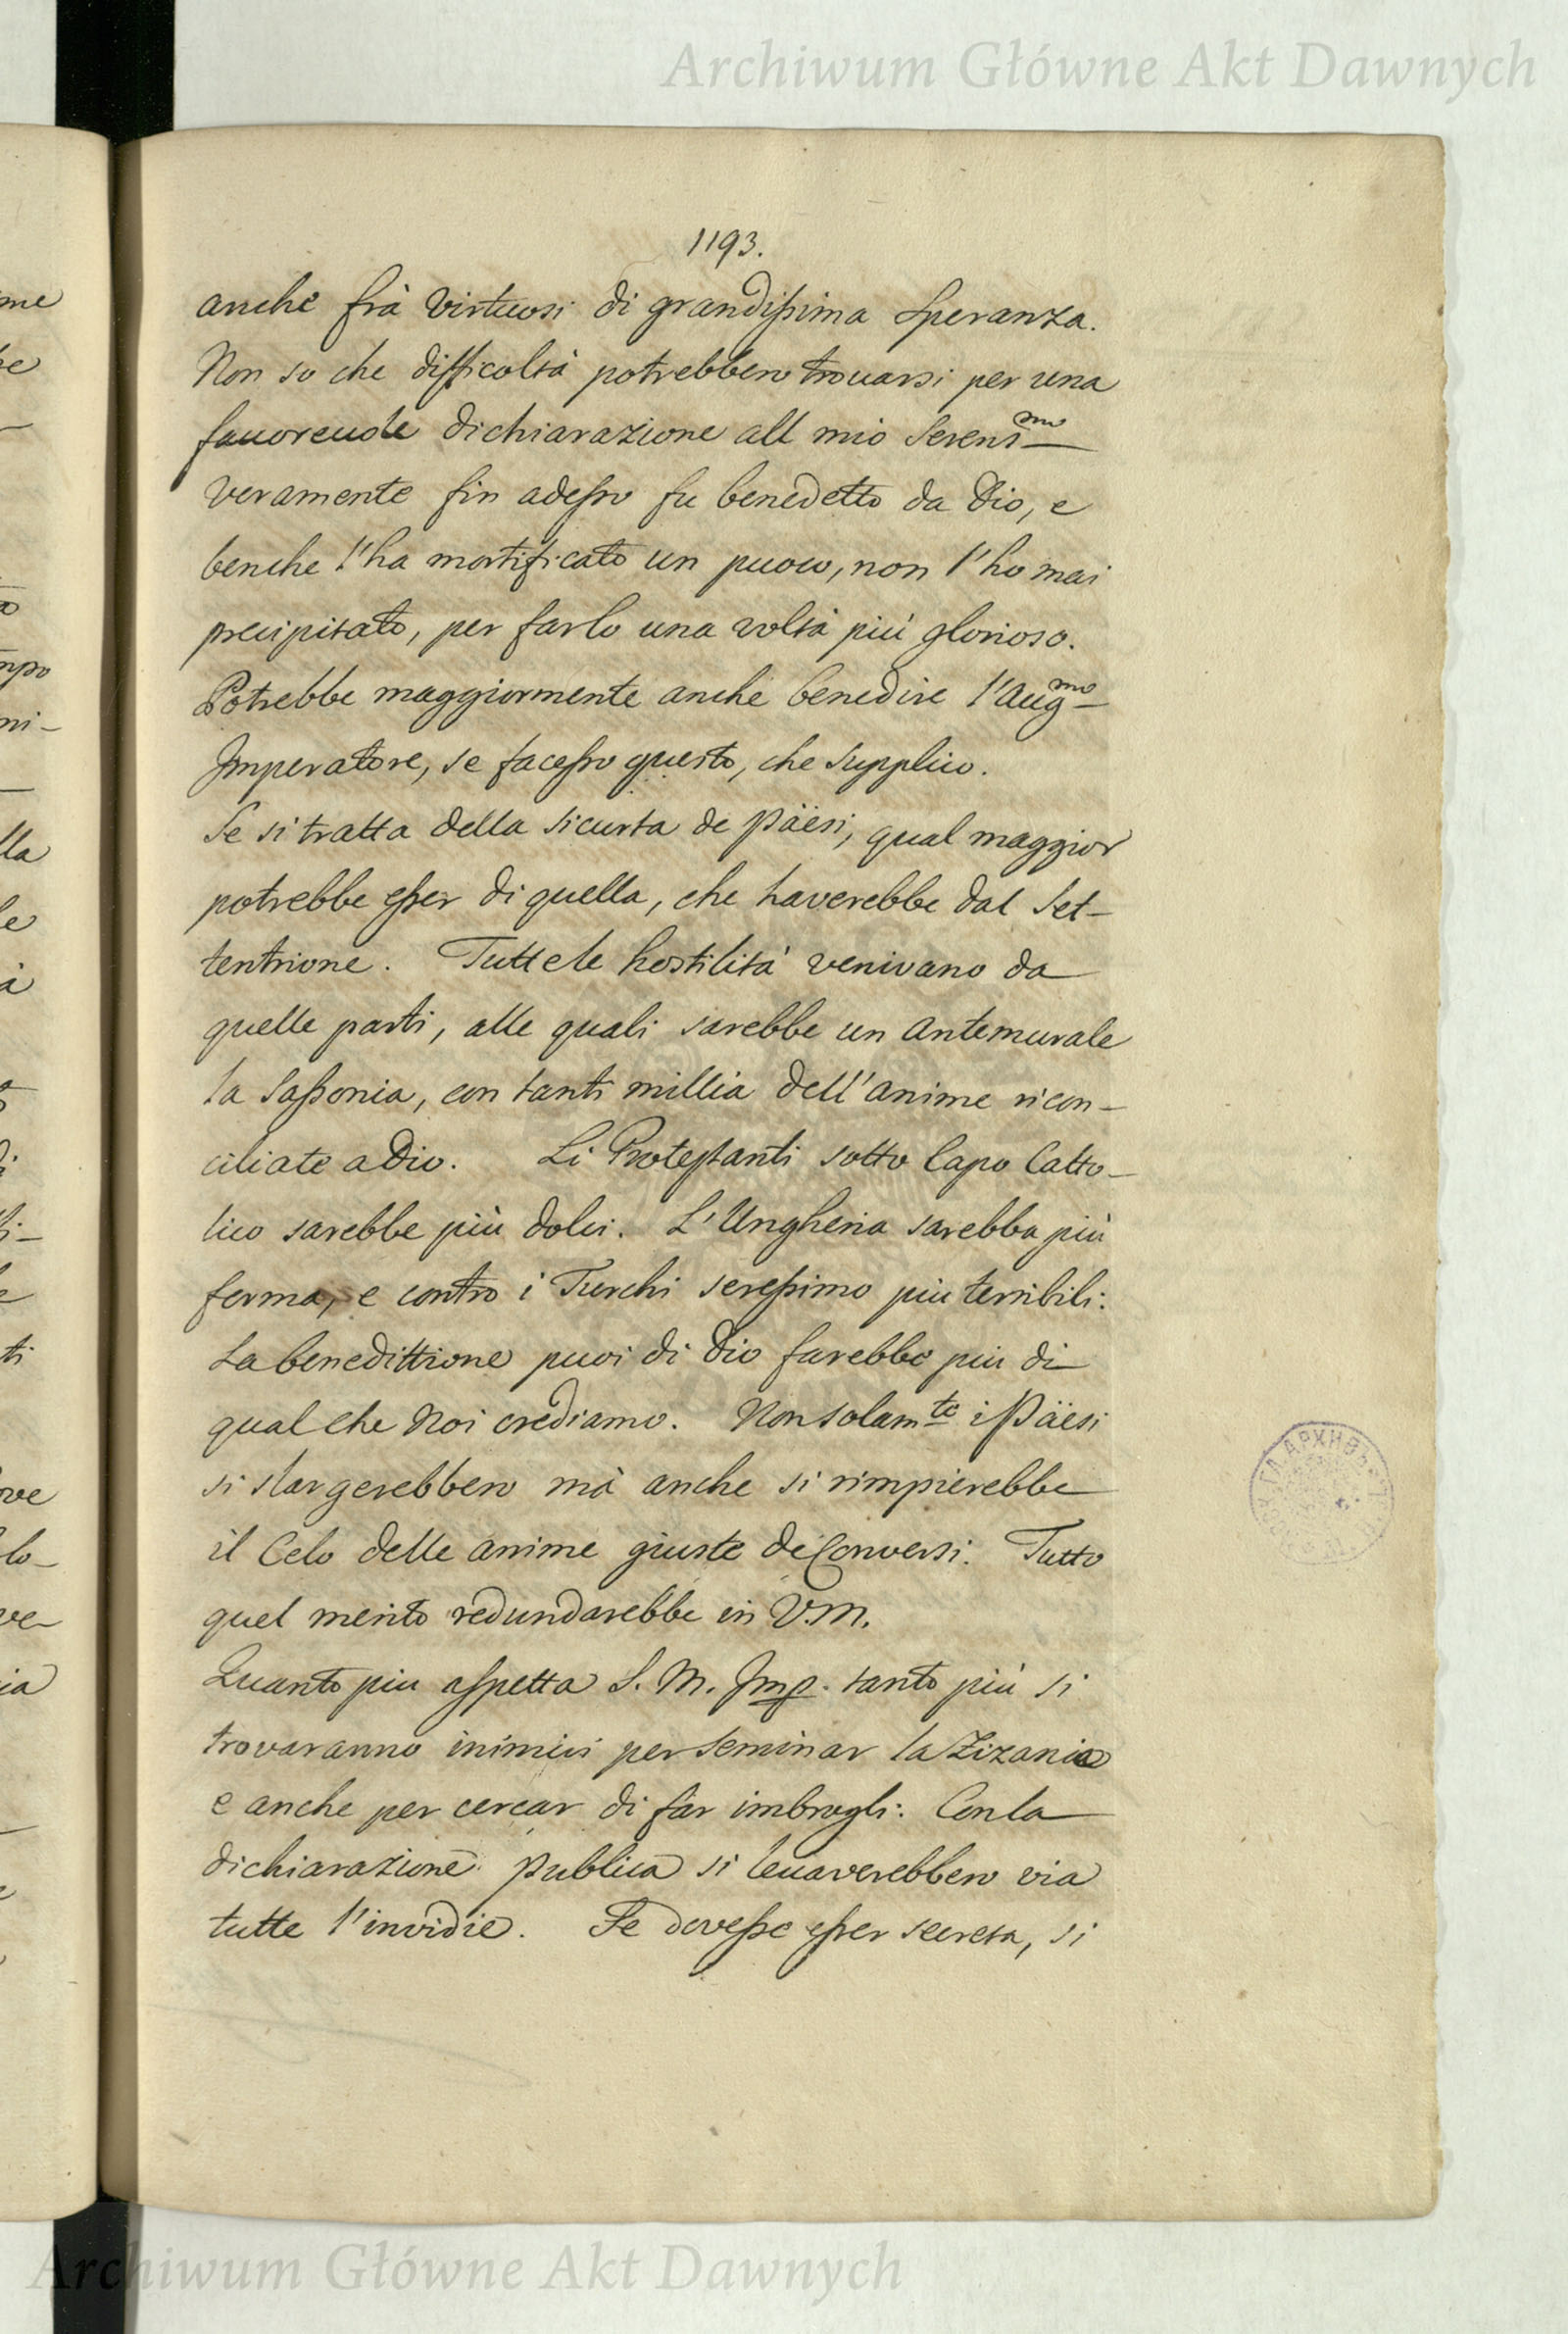 Archiwum Główne Akt Dawnych
1193.
anche frà Virtuosi di grandissima Speranza.
Non so che difficoltà potrebbero trouarsi per una
fauoreuole dichiarazione all mio Serens̃mo
Veramente fin adesso fu benedetto da Dio, e
benche l'ha mortificato un puoco, non l'ho mai
precipitato, per farlo una voltà più glorioso.
Potrebbe maggiormente anche benedire l'Augmo
Imperatore, se facesso questo, che supplico.
Se si tratta della sicurta de Päesi, qual maggior
potrebbe esser di quella, che haverebbe dal Set-
tentrione. Tutte le hostilità venivano da
quelle parti, alle quali sarebbe un Antemurale
la Sassonia, con tanti millia dell'anime ricon-
ciliate a Dio. Li Protestanti sotto Capo Catto-
lico sarebbe più dolci. L'Ungheria sarebba più
ferma, e contro i Turchi seressimo più terribili.
La benedittione puoi di Dio farebbe più di
qual che Noi crediamo. Non solamte i Päesi
si slargerebbero mà anche si rimpierebbe
il Celo delle anime giuste de Conversi. Tutto
quel merito redundarebbe in V.M.
Quanto piu aspetta S. M. Imp. tanto più si
trovaranno inimici per seminar la Zizania
e anche per cercar di far imbrogli. Con la
dichiarazione publica si leuaverebbero via
tutte l'invidie. Se dovesse esser secreta, si
Archiwum Główne Akt Dawnych